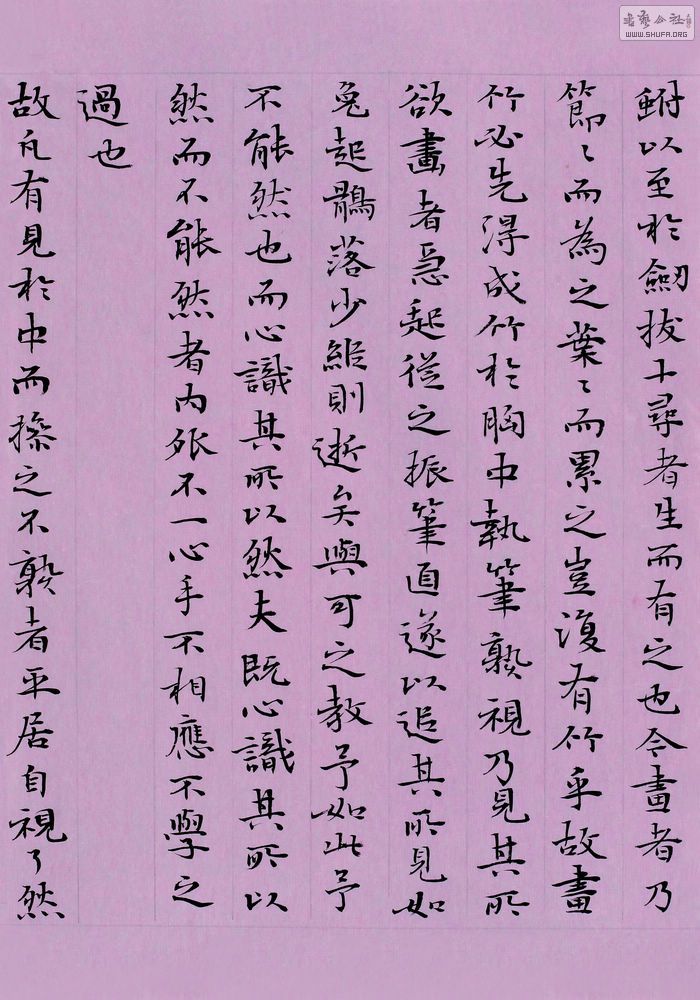 蚹以至於劔拔十尋者生而有之也今畫者乃
節〻而為之葉〻而累之豈復有竹乎故畫
竹必先得成竹於胸中執筆熟視乃見其所
欲畫者急起從之振筆直遂以追其所見如
兔起鶻落少縱則逝矣與可之教予如此予
不能然也而心識其所以然夫既心識其所以
然而不能然者內外不一心手不相應不學之
過也
故凡有見於中而操之不熟者平居自視了然
書藝公社
WWW.SHUFA.ORG